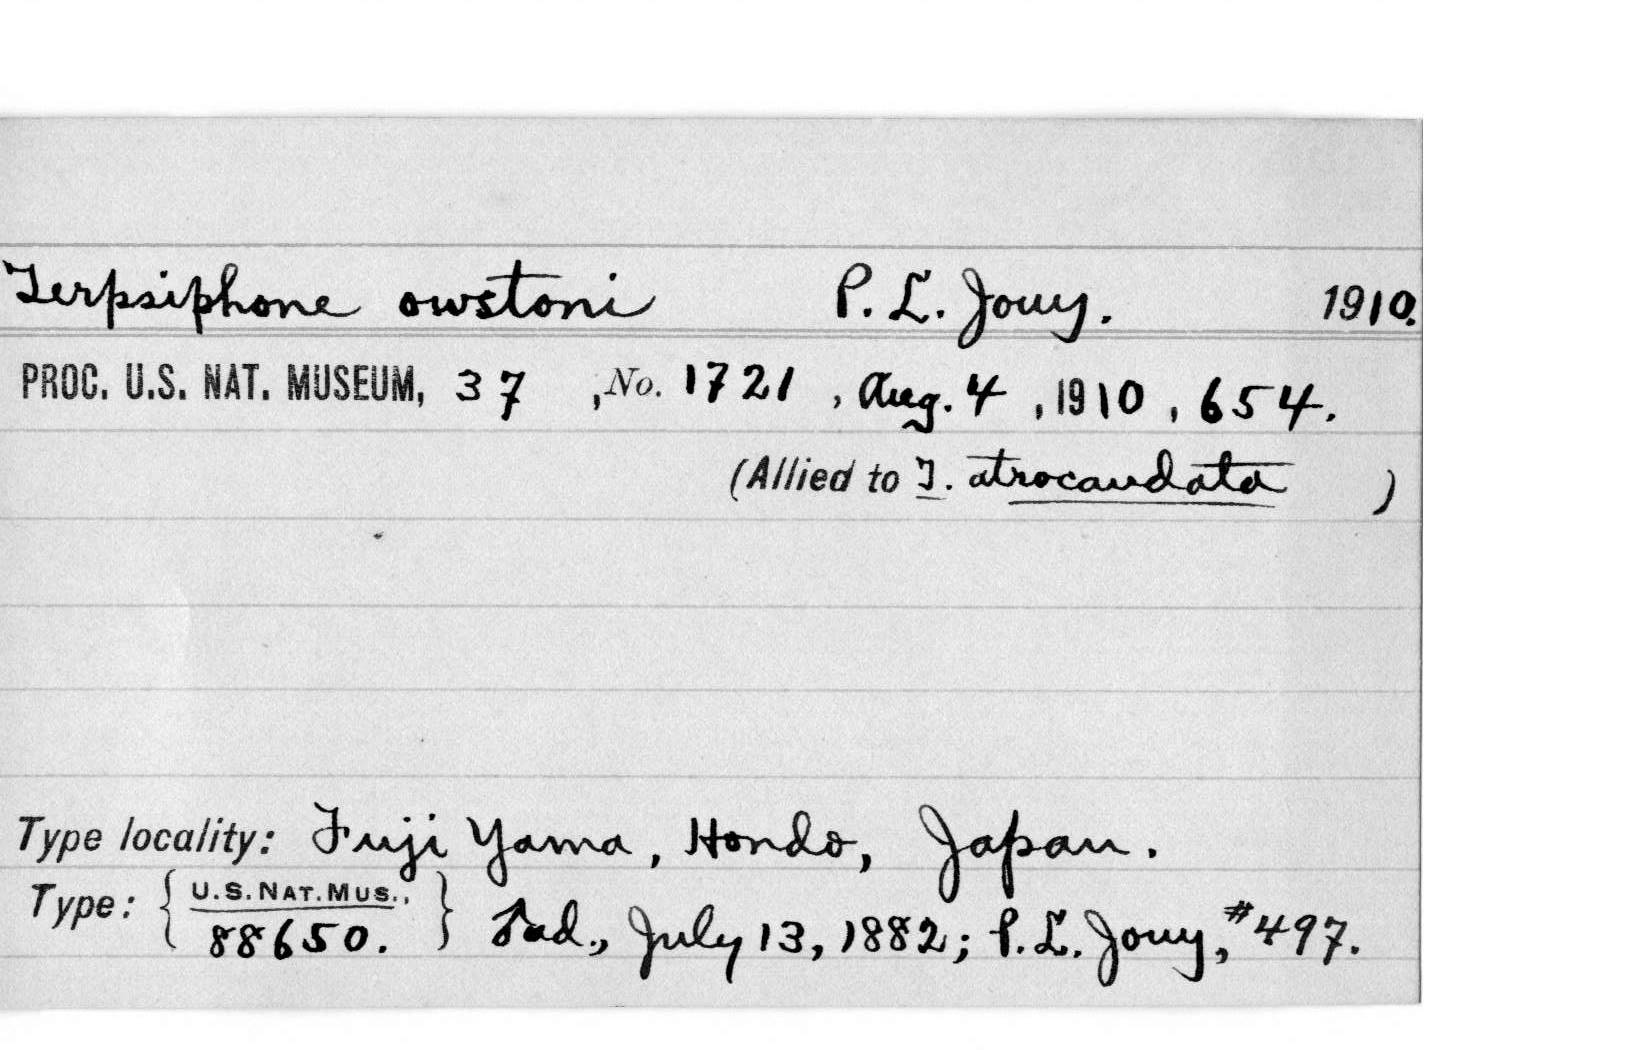 Terpsiphone owstoni P. L. Jouy. 1910.
PROC. U.S. NAT. MUSEUM, 37, No. 1721, Aug. 4, 1910, 654.
(Allied to T. atrocaudata)
Type locality: Fuji Yama, Hondo, Japan.
Type: { U.S. NAT. MUS., 88650. } ad., July 13, 1882; P. L. Jouy, #497.